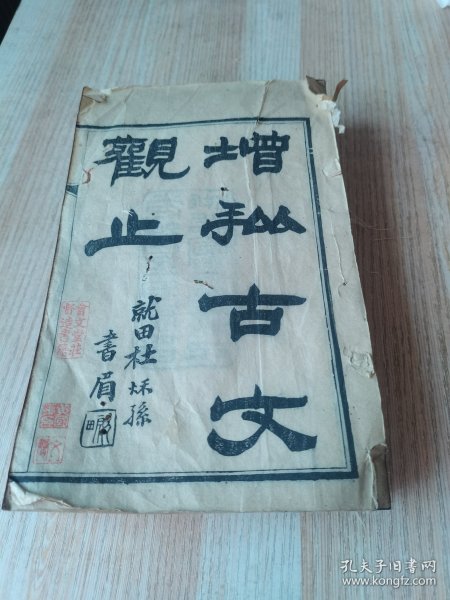 增批古文
觀止
就田杜秌孫
書眉
孔夫子旧书网
www.kongfz.com